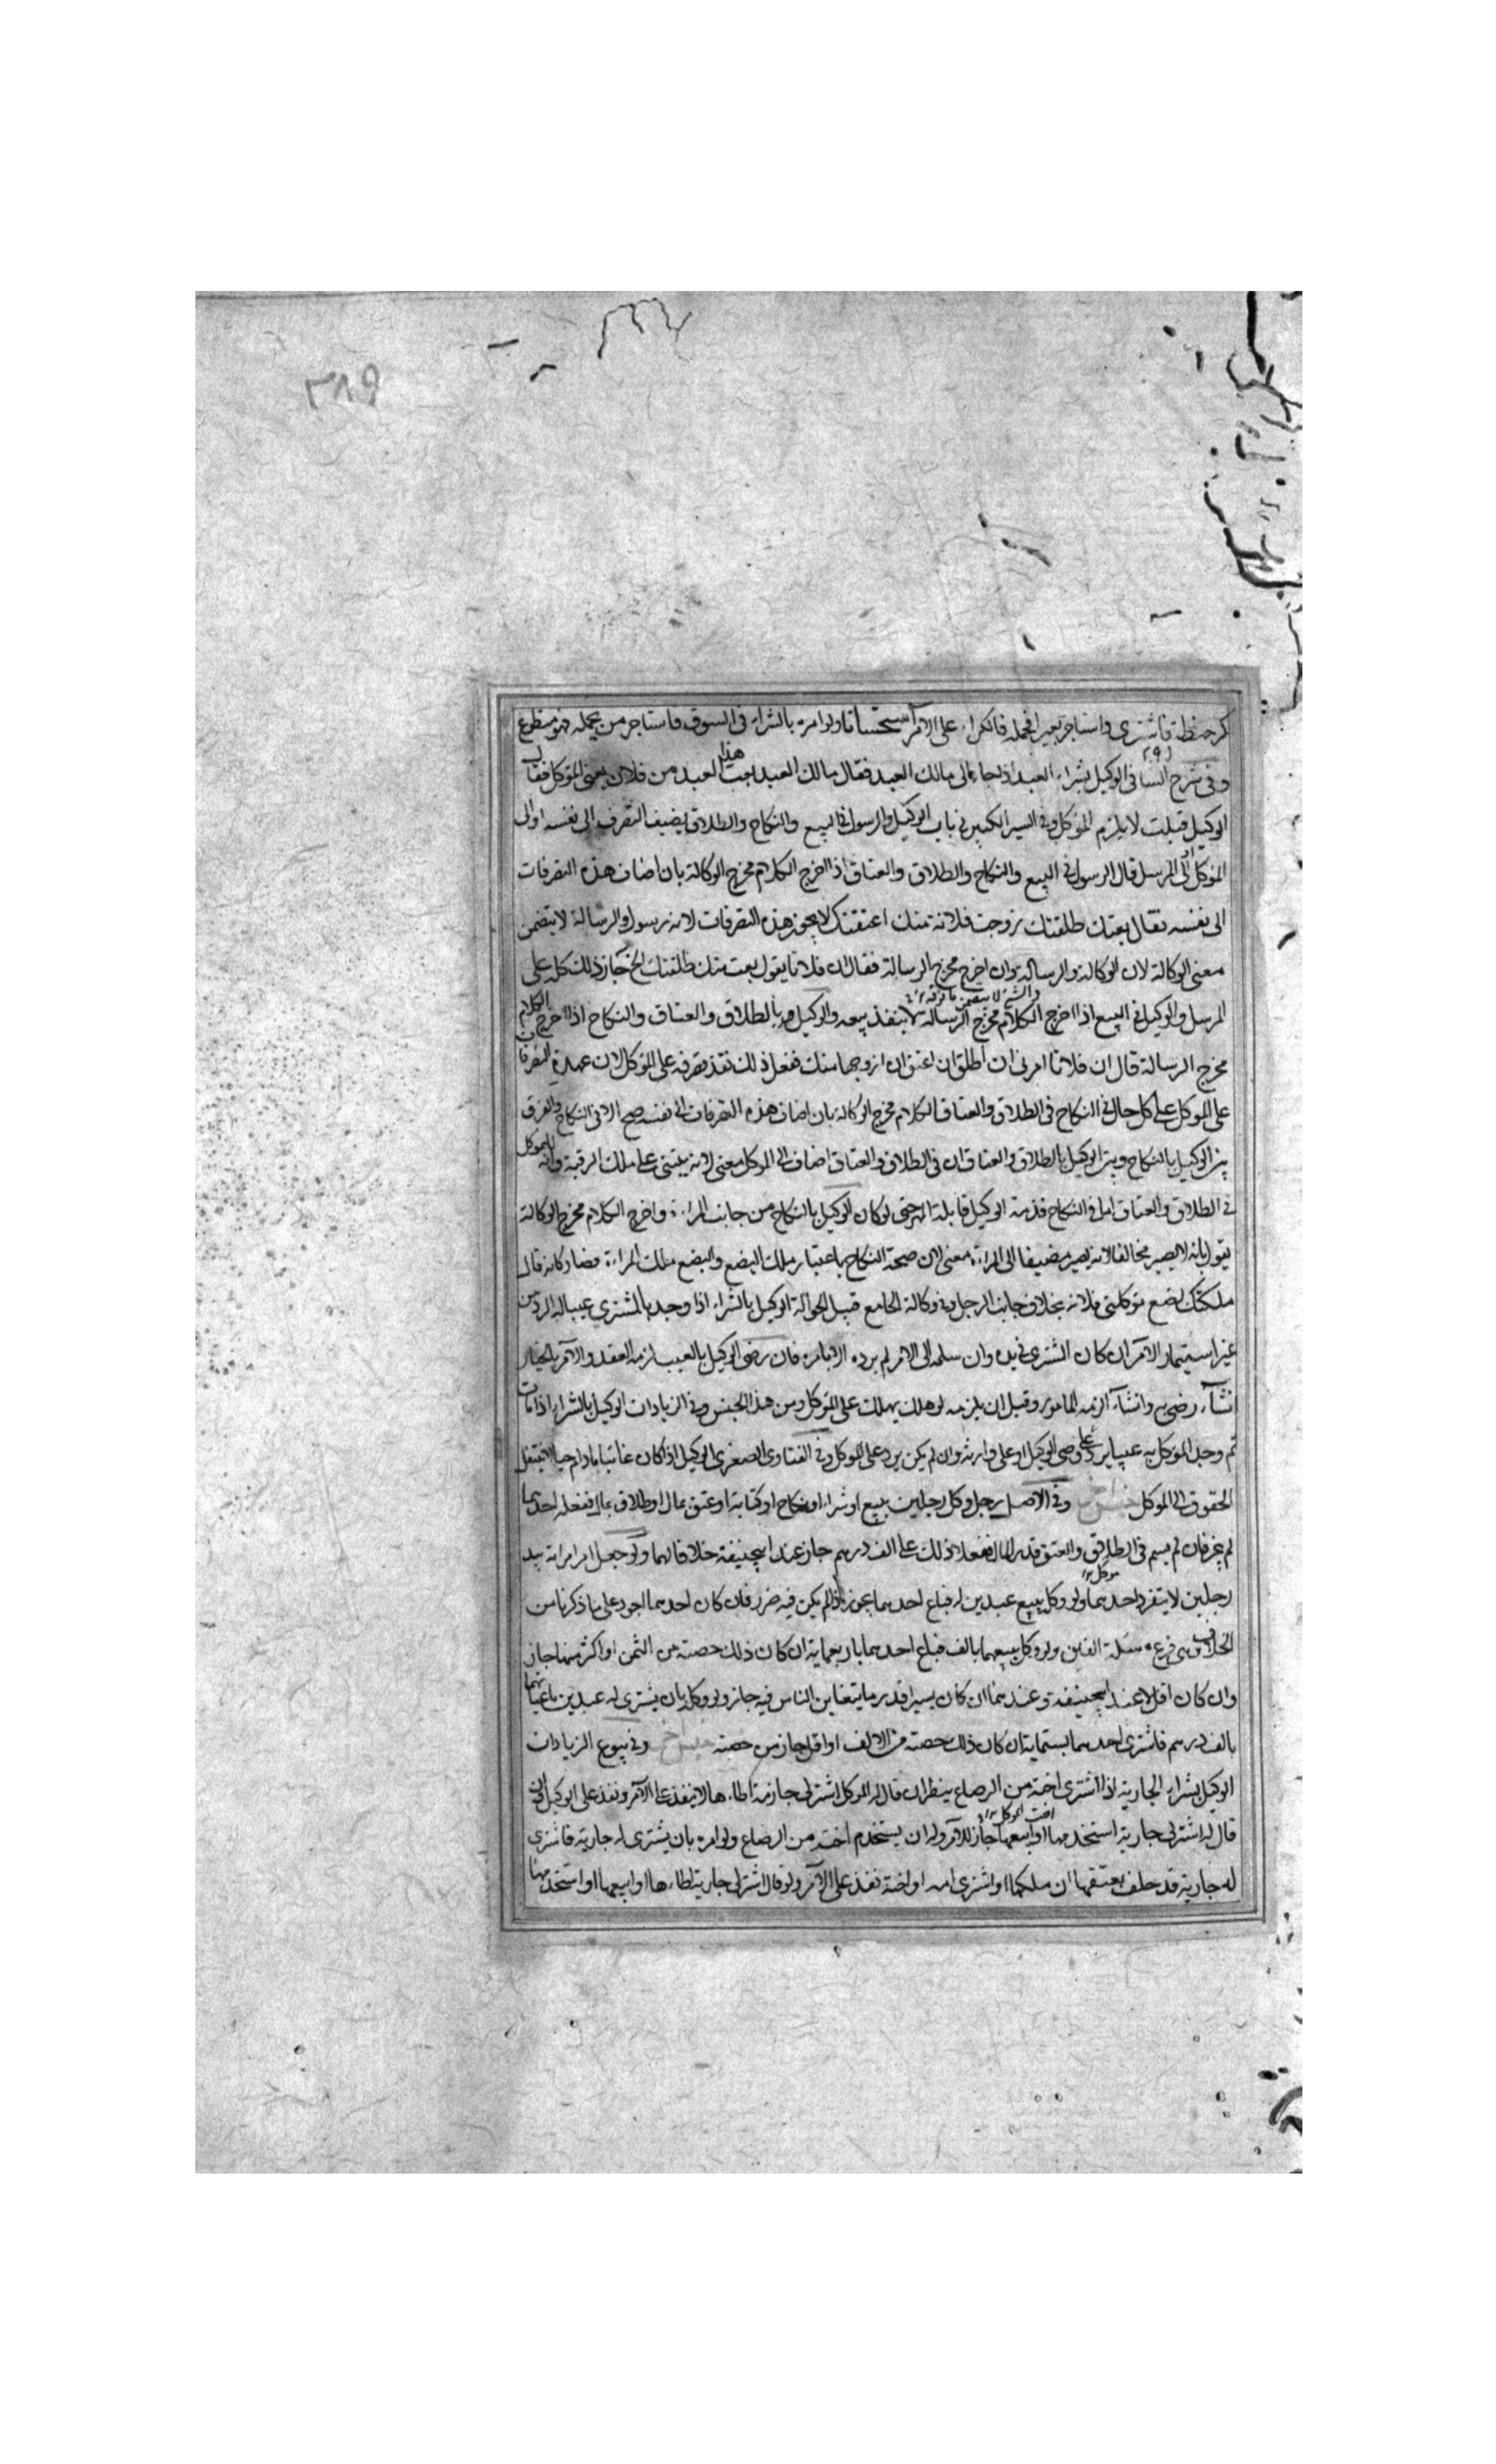 ٣٨٩
كر حنطة فاشترى واستاجر بعيرا فحمله فالكراء على الآمر استحسانا ولو امره بالشراء فى السوق فاستاجر من يحمله فهو متطوع
وفى شرح الشافى الوكيل بشراء العبد اذا جاء الى مالك العبد فقال مالك العبد بعت هذا العبد من فلان يعنى الموكل فقال
الوكيل قبلت لا يلزم الموكل وفى السير الكبير فى باب الوكيل والرسول فى البيع والنكاح والطلاق يضيف التصرف الى نفسه او الى
الموكل او الى المرسل قال الرسول فى البيع والنكاح والطلاق والعتاق اذا اخرج الكلام مخرج الوكالة بان اضاف هذه التصرفات
الى نفسه فقال بعتك طلقتك زوجت فلانة منك اعتقتك لا يجوز هذه التصرفات لانه رسول والرسالة لا يتضمن
معنى الوكالة لان الوكالة والرسالة وان اخرج مخرج الرسالة فقال ان فلانا يقول بعت منك طلقتك الخ جاز ذلك كله على
والشئ لا يتضمن ما فوقه
المرسل والوكيل فى البيع اذا اخرج الكلام مخرج الرسالة لا ينفذ بيعه والوكيل بالطلاق والعتاق والنكاح اذا اخرج الكلام
مخرج الرسالة قال ان فلانا امرنى ان اطلق ان اعتق ان ازوجها منك ففعل ذلك نفذ تصرفه على الموكل لان عهدة التصرفات
على الموكل على كل حال فى النكاح فى الطلاق والعتاق الكلام مخرج الوكالة بان اضاف هذه التصرفات الى نفسه صح الا فى النكاح والفرق
بين الوكيل بالنكاح وبين الوكيل بالطلاق والعتاق ان فى الطلاق والعتاق اضاف الى الموكل معنى لانه يبتنى على ملك الرقبة وانه للموكل
فى الطلاق والعتاق اما فى النكاح فذمة الوكيل قابلة للمهر حتى لو كان الوكيل بالنكاح من جانب المراة واخرج الكلام مخرج الوكالة
يقول بانه لا يصير مخالفا لانه يصير مضيفا الى المراة معنى لان صحة النكاح باعتبار ملك البضع والبضع ملك المراة فصار كانه قال
ملكتك بضع موكلتى فلانة بخلاف جانب الرجل وفى وكالة الجامع قبيل الحوالة الوكيل بالشراء اذا وجد بالمشترى عيبا له الرد من
غير استيمار الآمر ان كان المشترى فى يده وان سلمه الى الآمر لم يرده الا بامره فان رضى الوكيل بالعيب لزمه العقد والآمر بالخيار
ان شاء رضى به وان شاء الزمه المامور وقبل ان يلزمه لو هلك يهلك على الموكل ومن هذا الجنس وفى الزيادات الوكيل بالشراء اذا مات
ثم وجد الموكل به عيبا يرد على وصى الوكيل او على وارثه وان لم يكن يرد على الموكل وفى الفتاوى الصغرى الوكيل اذا كان غائبا مادام حيا لا ينتقل
الحقوق الى الموكل جنس آخر وفى الاصل رجل وكل رجلين ببيع او شراء او نكاح او كتابة او عتق بمال او طلاق بمال ففعله احدهما
لم يجز فان لم يسم فى الطلاق والعتق قدر المال ففعلا ذلك على الف درهم جاز عند ابيحنيفة خلافا لهما ولو جعل امر امراته بيد
رجلين لا يتفرد احدهما ولو وكل ببيع عبدين له فباع احدهما يجوز اذا لم يكن فيه ضرر فان كان احدهما اجود على ما ذكرنا من
الخلاف وهى فرع مسئلة الغبن ولو وكل ببيعهما بالف فباع احدهما باربعماية ان كان ذلك حصته من الثمن او اكثر منها جاز
وان كان اقل لا عند ابيحنيفة وعندهما ان كان يسيرا قدر ما يتغابن الناس فيه جاز ولو وكل بان يشترى له عبدين باعيانهما
بالف درهم فاشترى احدهما بستماية ان كان ذلك حصته من الالف او اقل جاز من حصته جنس آخر وفى بيوع الزيادات
الوكيل بشراء الجارية اذا اشترى اخته من الرضاع ينظر ان قال له الموكل اشتر لى جارية اطاءها لا ينفذ على الآمر ونفذ على الوكيل وان
قال له اشتر لى جارية استخدمها او ابيعها جاز للآمر وله ان يستخدم اخته من الرضاع ولو امره بان يشترى له جارية فاشترى
له جارية قد حلف بعتقها ان ملكها او اشترى امه او اخته نفذ على الآمر ولو قال اشتر لى جارية اطاءها او ابيعها او استخدمها